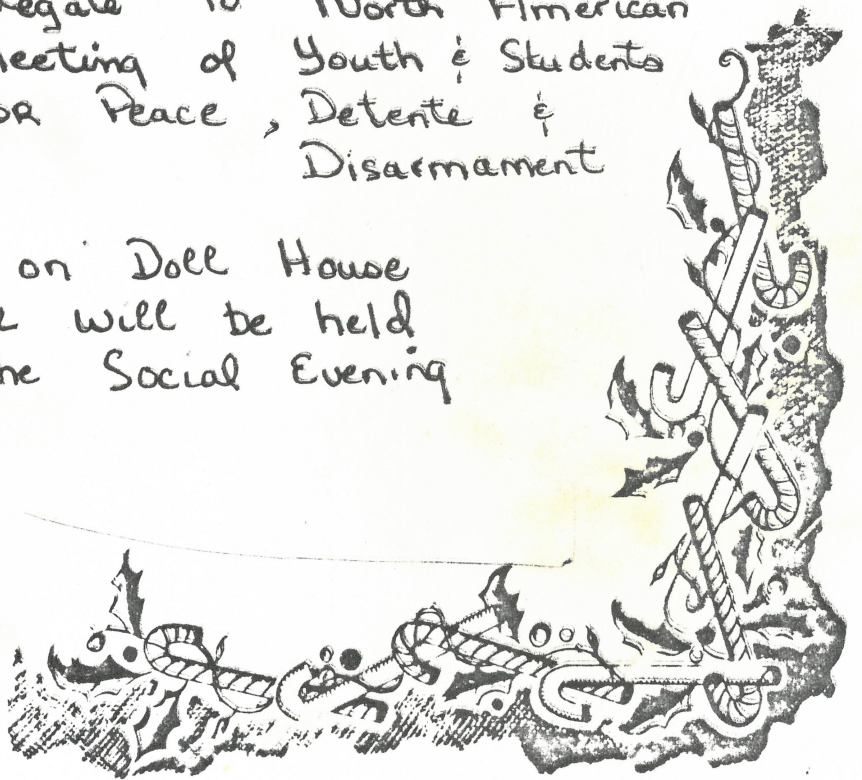 egate to North American
eeting of Youth & Students
or Peace, Detente &
Disarmament
on Doll House
will be held
he Social Evening